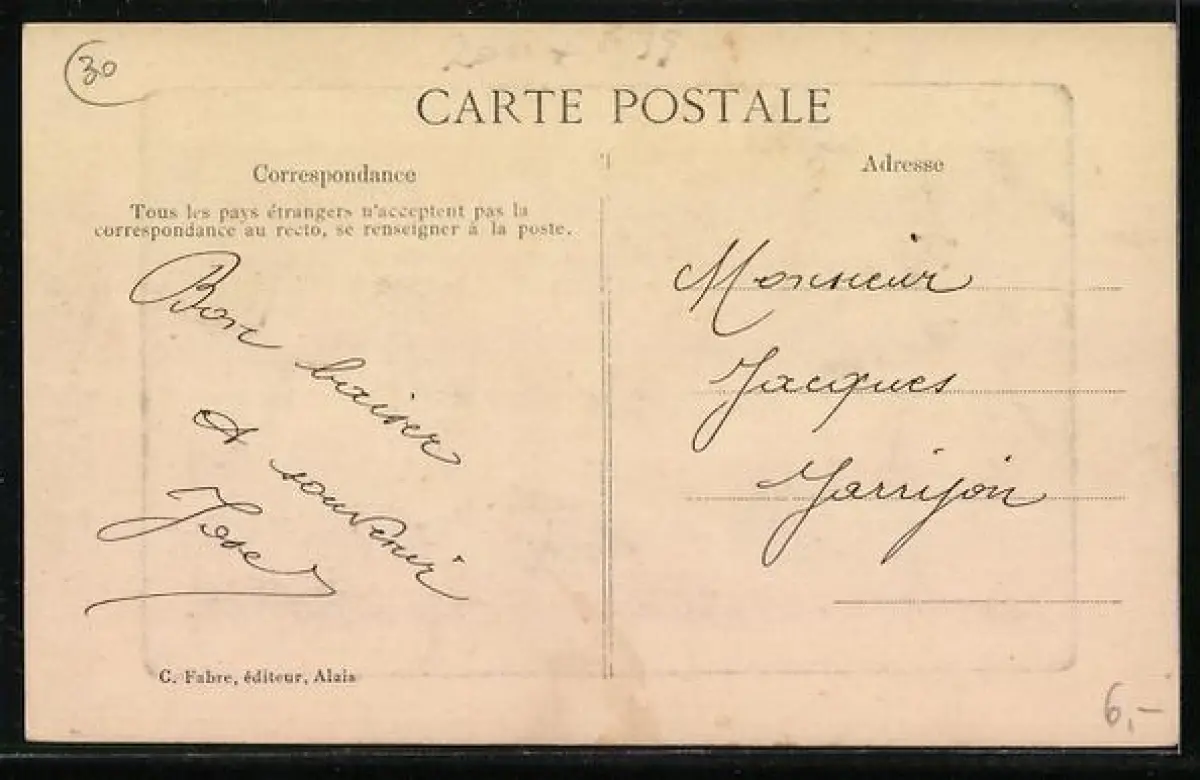 30
CARTE POSTALE
Correspondance
Tous les pays étrangers n'acceptent pas la
correspondance au recto, se renseigner à la poste.
Bon baiser
et souvenir
José
C. Fabre, éditeur, Alais
Adresse
Monsieur
Jacques
Jarrijon
6,-